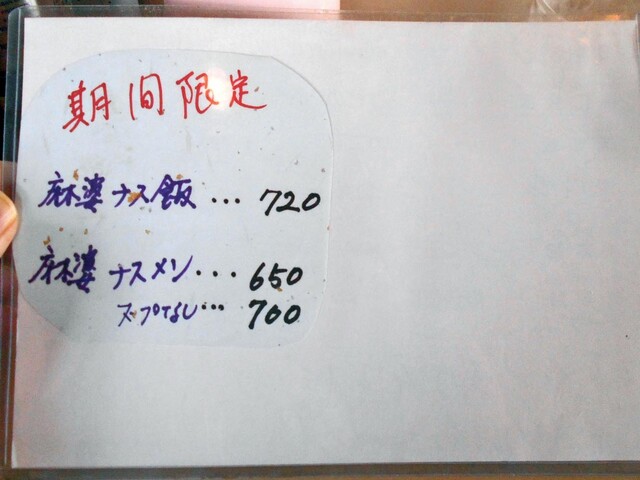 期間限定
麻婆ナス飯…720
麻婆ナスメン…650
スープなし…700